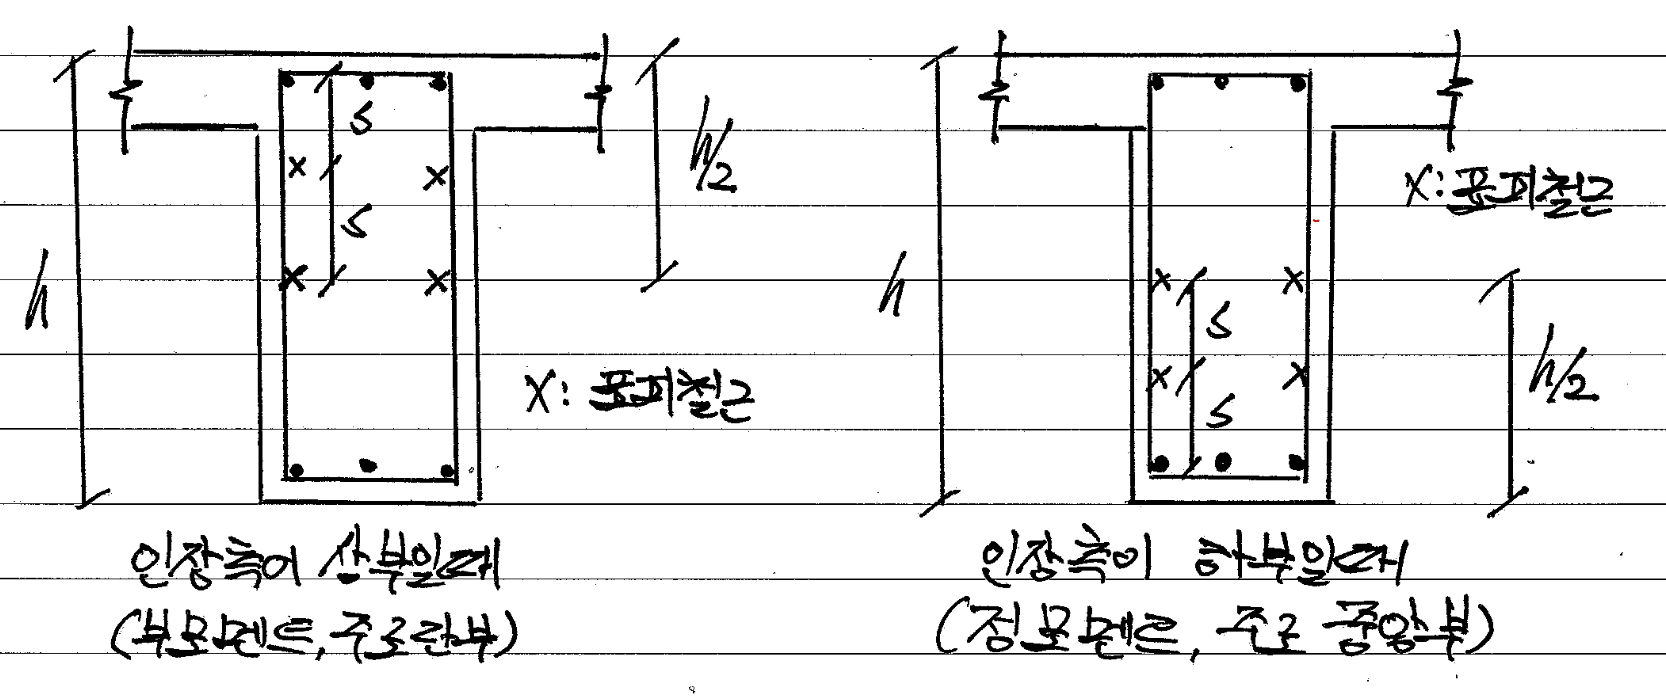 h
S
S
h/2
X: 표피철근
인장측이 상부일때
(부모멘트, 주로 단부)
h
X: 표피철근
S
S
h/2
인장측이 하부일때
(정모멘트, 주로 중앙부)